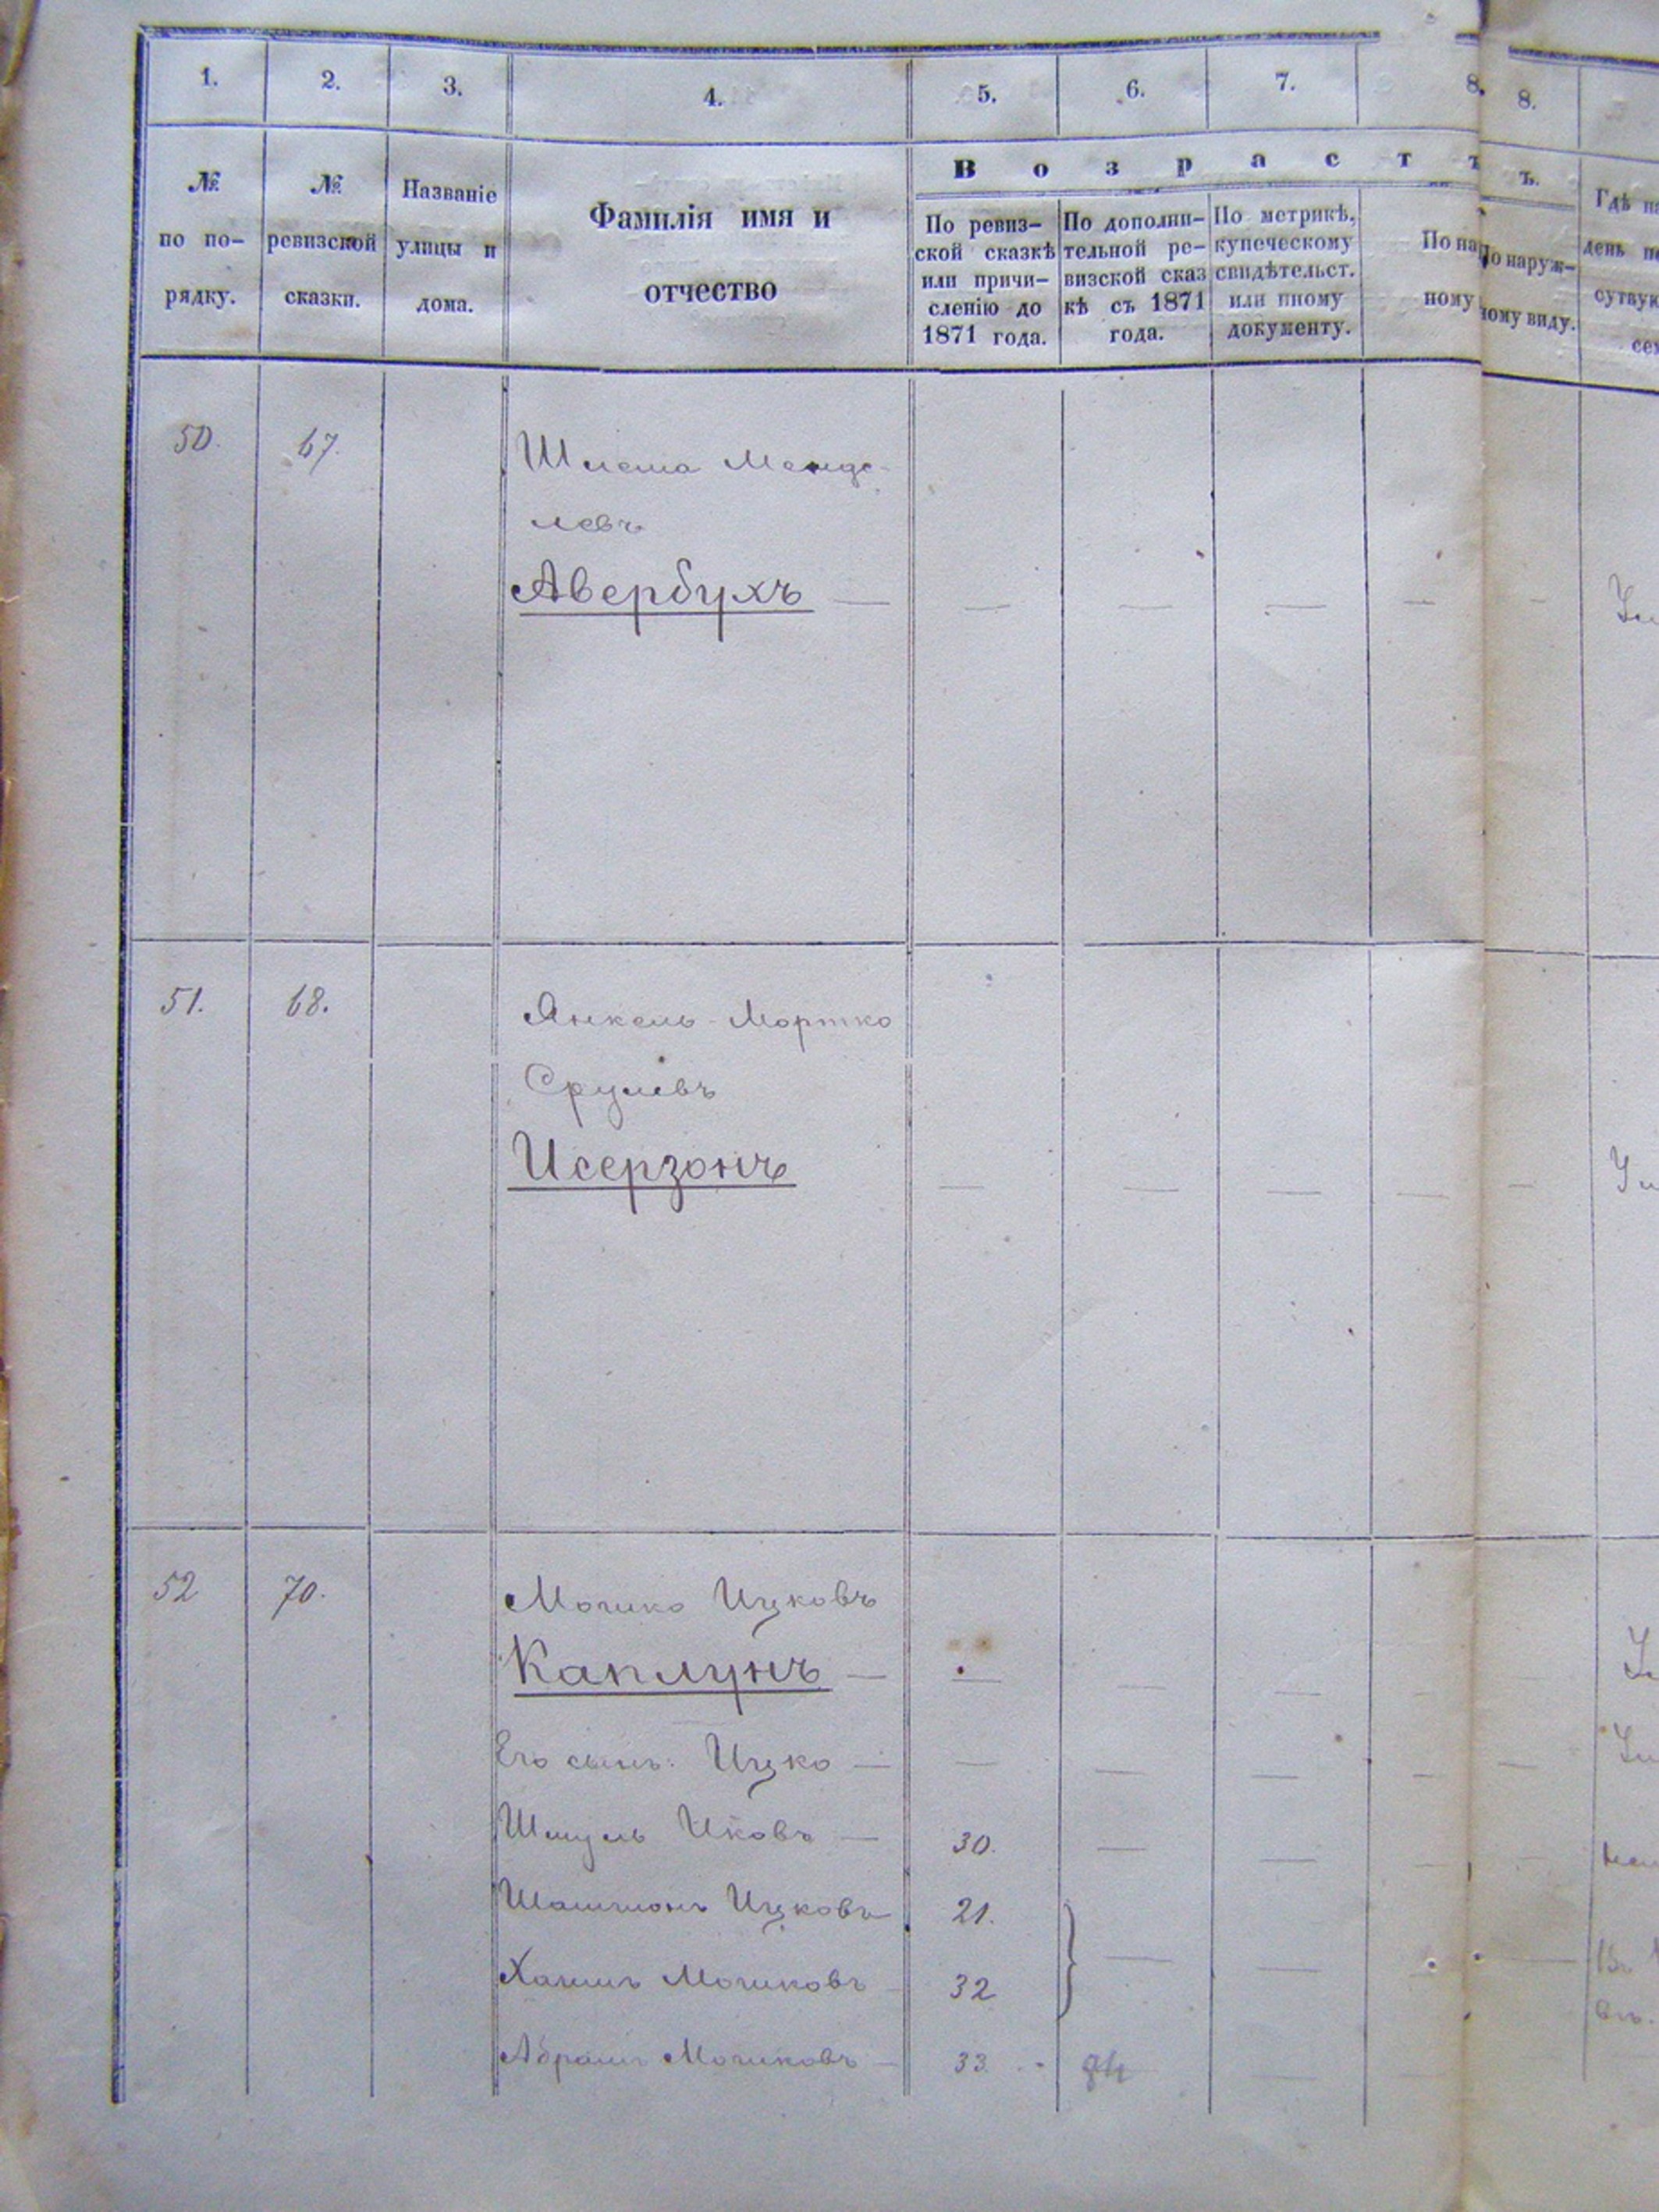 1. 2. 3. 4. 5. 6. 7. 8. 8.
Возрастъ
ъ.
№ по порядку.
№ ревизской сказки.
Названіе улицы и дома.
Фамилія имя и
отчество
По ревиз-
ской сказкѣ
или причи-
сленію до
1871 года.
По дополни-
тельной ре-
визской сказ
кѣ съ 1871
года.
По метрикѣ,
купеческому
свидѣтельст.
или иному
документу.
По на
ному
По наруж-
ному виду.
Гдѣ на
день п
сутвую
сем
50. 67. Шлема Менде-
левъ
Авербухъ —
51. 68. Янкель-Мортко
Срулевъ
Исерзонъ
52 70. Мошко Ицковъ
Каплунъ —
Его сынъ: Ицко —
Шмуль Ицковъ — 30.
Шашионъ Ицковъ 21.
Хаимъ Мошковъ 32
Абрамъ Мошковъ — 33.